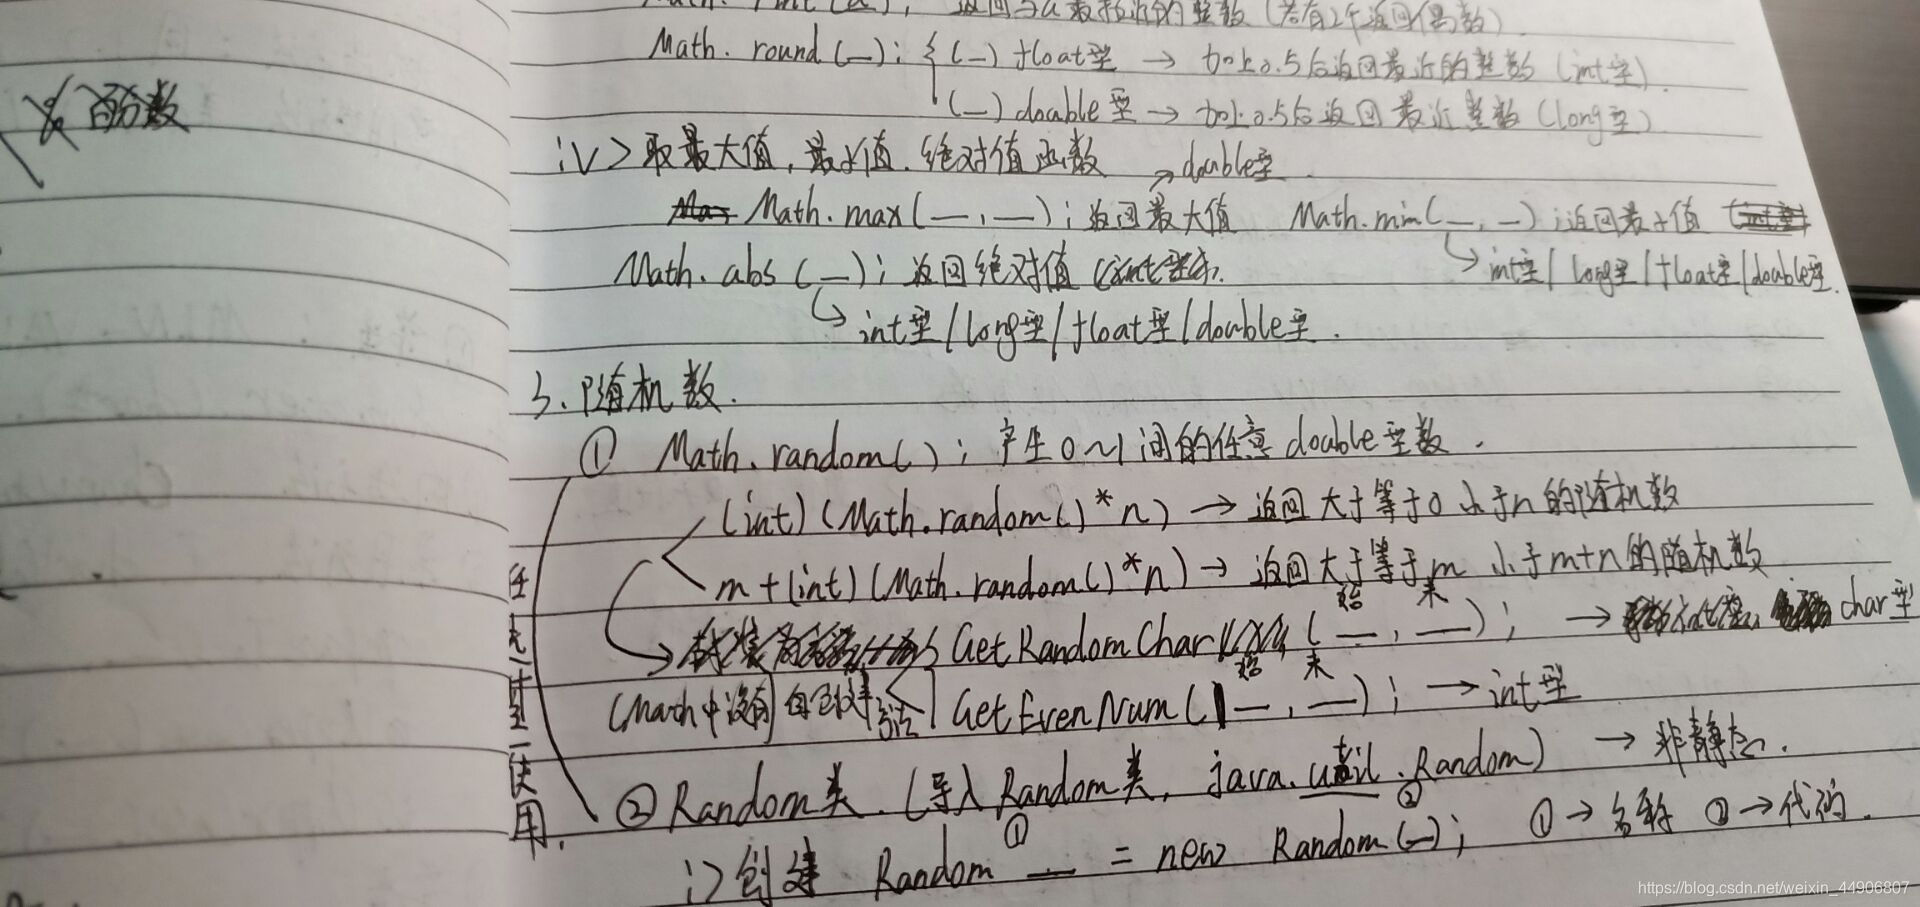 Math. rint(a); 返回与a最接近的整数(若有2个返回偶数)
Math. round(—); { (—) float型 → 加上0.5后返回最近的整数(int型)
(—) double型 → 加上0.5后返回最近整数(long型)
百分数
iv> 取最大值,最小值.绝对值函数
→ double型
Math.max(—,—);返回最大值 Math.min(—,—);返回最小值
Math.abs(—);返回绝对值
↳ int型/long型/float型/double型
↳ int型/long型/float型/double型.
3.随机数.
① Math.random();产生0~1间的任意double型数.
(int)(Math.random()*n) → 返回大于等于0小于n的随机数
m+(int)(Math.random()*n) → 返回大于等于m 小于m+n的随机数
始 末
GetRandomChar(—,—); → char型
始 末
(Math中没有 自己 GetEvenNum(—,—); → int型
② Random类.(导入Random类, java.util.Random) → 非静态.
i>创建 Random ① — = new Random(—); ①→名称 ②→代码.
使用.
https://blog.csdn.net/weixin_44906807